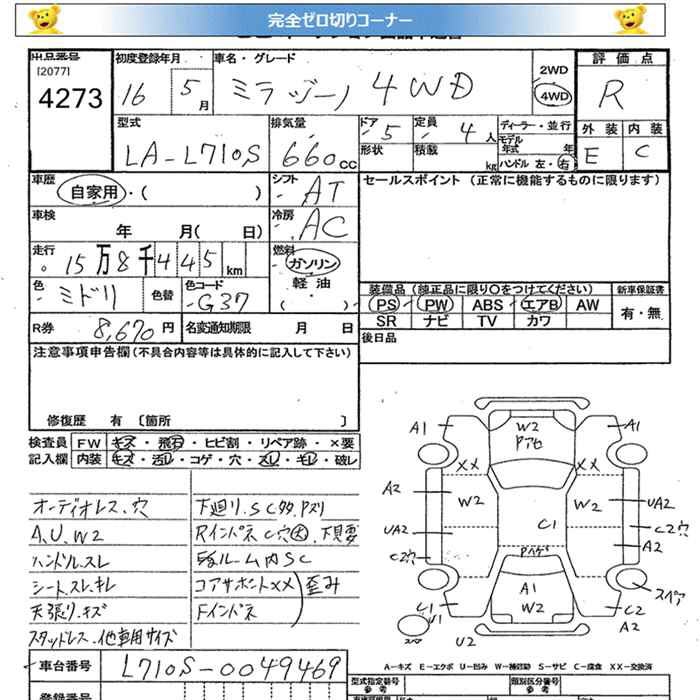 完全ゼロ切りコーナー
[2077]
4273
初度登録年月
16 5月
車名・グレード
ミラジーノ 4WD
2WD
4WD
評価点
R
外装 内装
E C
型式
LA-L710S
排気量
660cc
ドア 5
定員 4人
形状 積載 kg
ディーラー・並行
モデル年式 年
ハンドル 左・右
車歴
自家用・( )
シフト AT
車検
年 月( 日)
冷房 AC
走行
15万8千445km
燃料
ガソリン
軽油
( )
色 ミドリ
色替
色コード G37
R券 8,670円
名変通知期限 月 日
セールスポイント(正常に機能するものに限ります)
装備品(純正品に限り○をつけてください)
PS PW ABS エアB AW
SR ナビ TV カワ
新車保証書
有・無
後日品
注意事項申告欄(不具合内容等は具体的に記入して下さい)
修復歴 有 〔箇所 〕
検査員 FW キズ・飛石・ヒビ割・リペア跡・×要
記入欄 内装 キズ・汚レ・コゲ・穴・スレ・キレ・破レ
オーディオレス、穴
A、U、W2
ハンドルスレ
シートスレ、キレ
天張り、キズ
スタッドレス、他車用サイズ
下廻り、SC
Rインパネ C穴大、下見要
ルーム内SC
コアサポートXX 歪み
Fインパネ
A1 W2 A1
XX XX
A2 W2 W2 UA2
UA2 C1 C2穴
C2穴 A2
A1
W2
スペア
U1 C2
A2
U2
A-キズ E-エクボ U-凹み W-補修跡 S-サビ C-腐食 XX-交換済
車台番号 L710S-0049469
型式指定番号
参考
類別区分番号
参考
登録番号